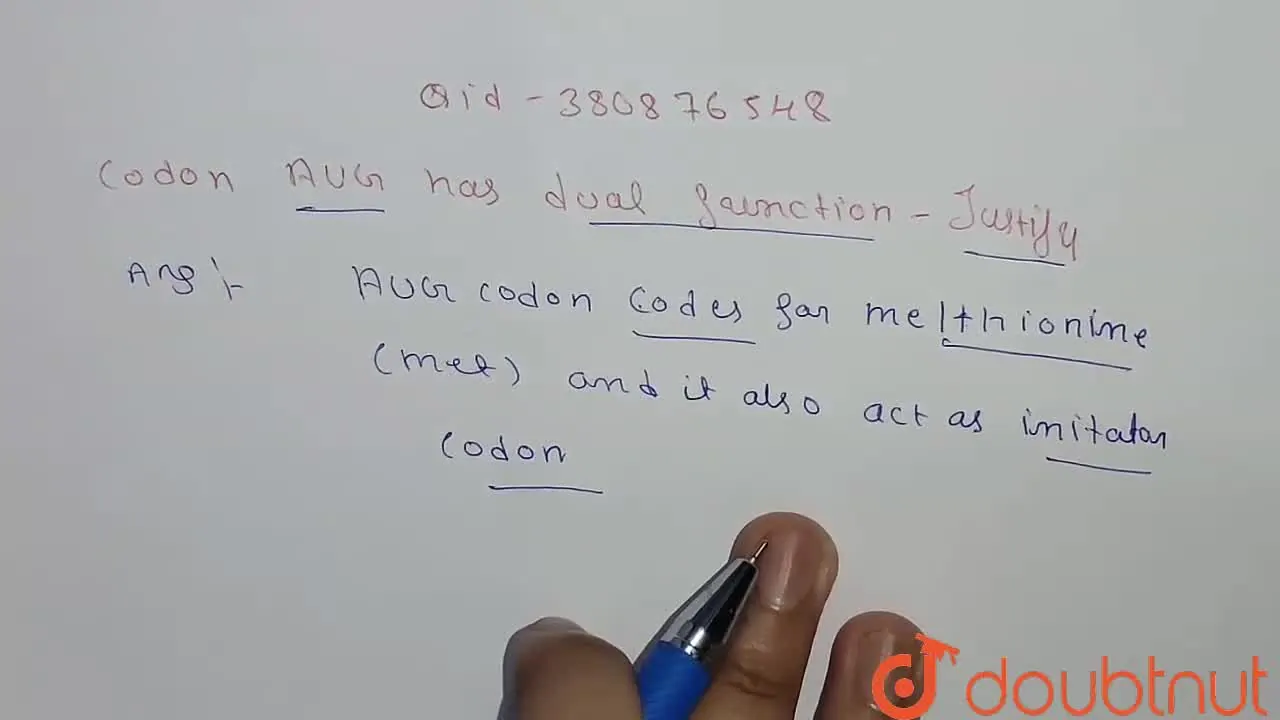 Qid - 380876548
Codon AUG has dual function - Justify
Ans :- AUG codon codes for melthionine
(met) and it also act as initatar
codon
doubtnut